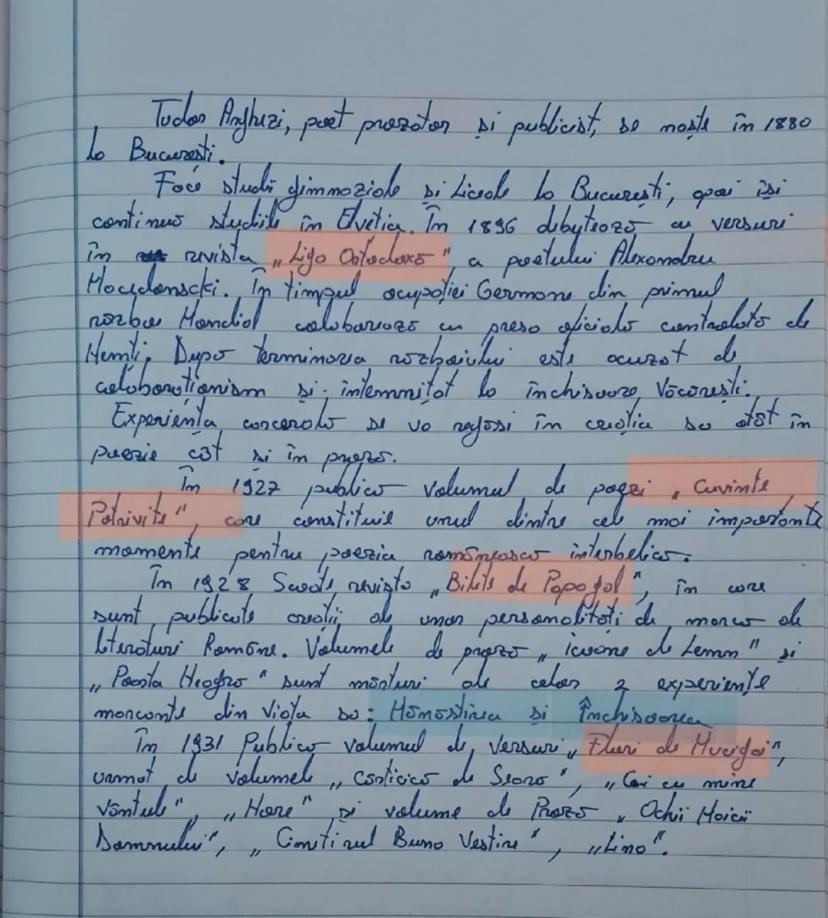 Tudor Arghezi, poet prozator și publicist, se naște în 1880
la București.
Face studii gimnaziale și Liceale la București, apoi își
continuă studiile în Elveția. În 1896 debutează cu versuri
în revista „Liga Ortodoxă", a poetului Alexandru
Macedonscki. În timpul ocupației Germane din primul
război Mondial colaborează cu presa oficială controlată de
Nemți. După terminarea războiului este acuzat de
colaboraționism și intemnițat la închisoare, Văcărești.
Experiența carcerală se va regăsi în creația sa atât în
poezie cât și în proză.
În 1927 publică volumul de poezi „Cuvinte
Potrivite", care constituie unul dintre cele mai importante
momente pentru poezia românească interbelică.
În 1928 Scoate revista „Bilete de Papagal", în care
sunt publicate creații ale unor personalități de marcă ale
literaturi Române. Volumele de proză „icoane de Lemn" și
„Poarta Neagră" sunt mărturi ale celor 2 experiențe
marcante din viața sa: Mănăstirea și Închisoarea
În 1931 Publică volumul de versuri „Fluri de Mucigai",
urmat de volumele „Cărticica de Seară", „Ca cu mine
vântule", „Hore" și volume de Proză „Ochii Maicii
Domnului", „Cimitirul Buna Vestire", „Lina".